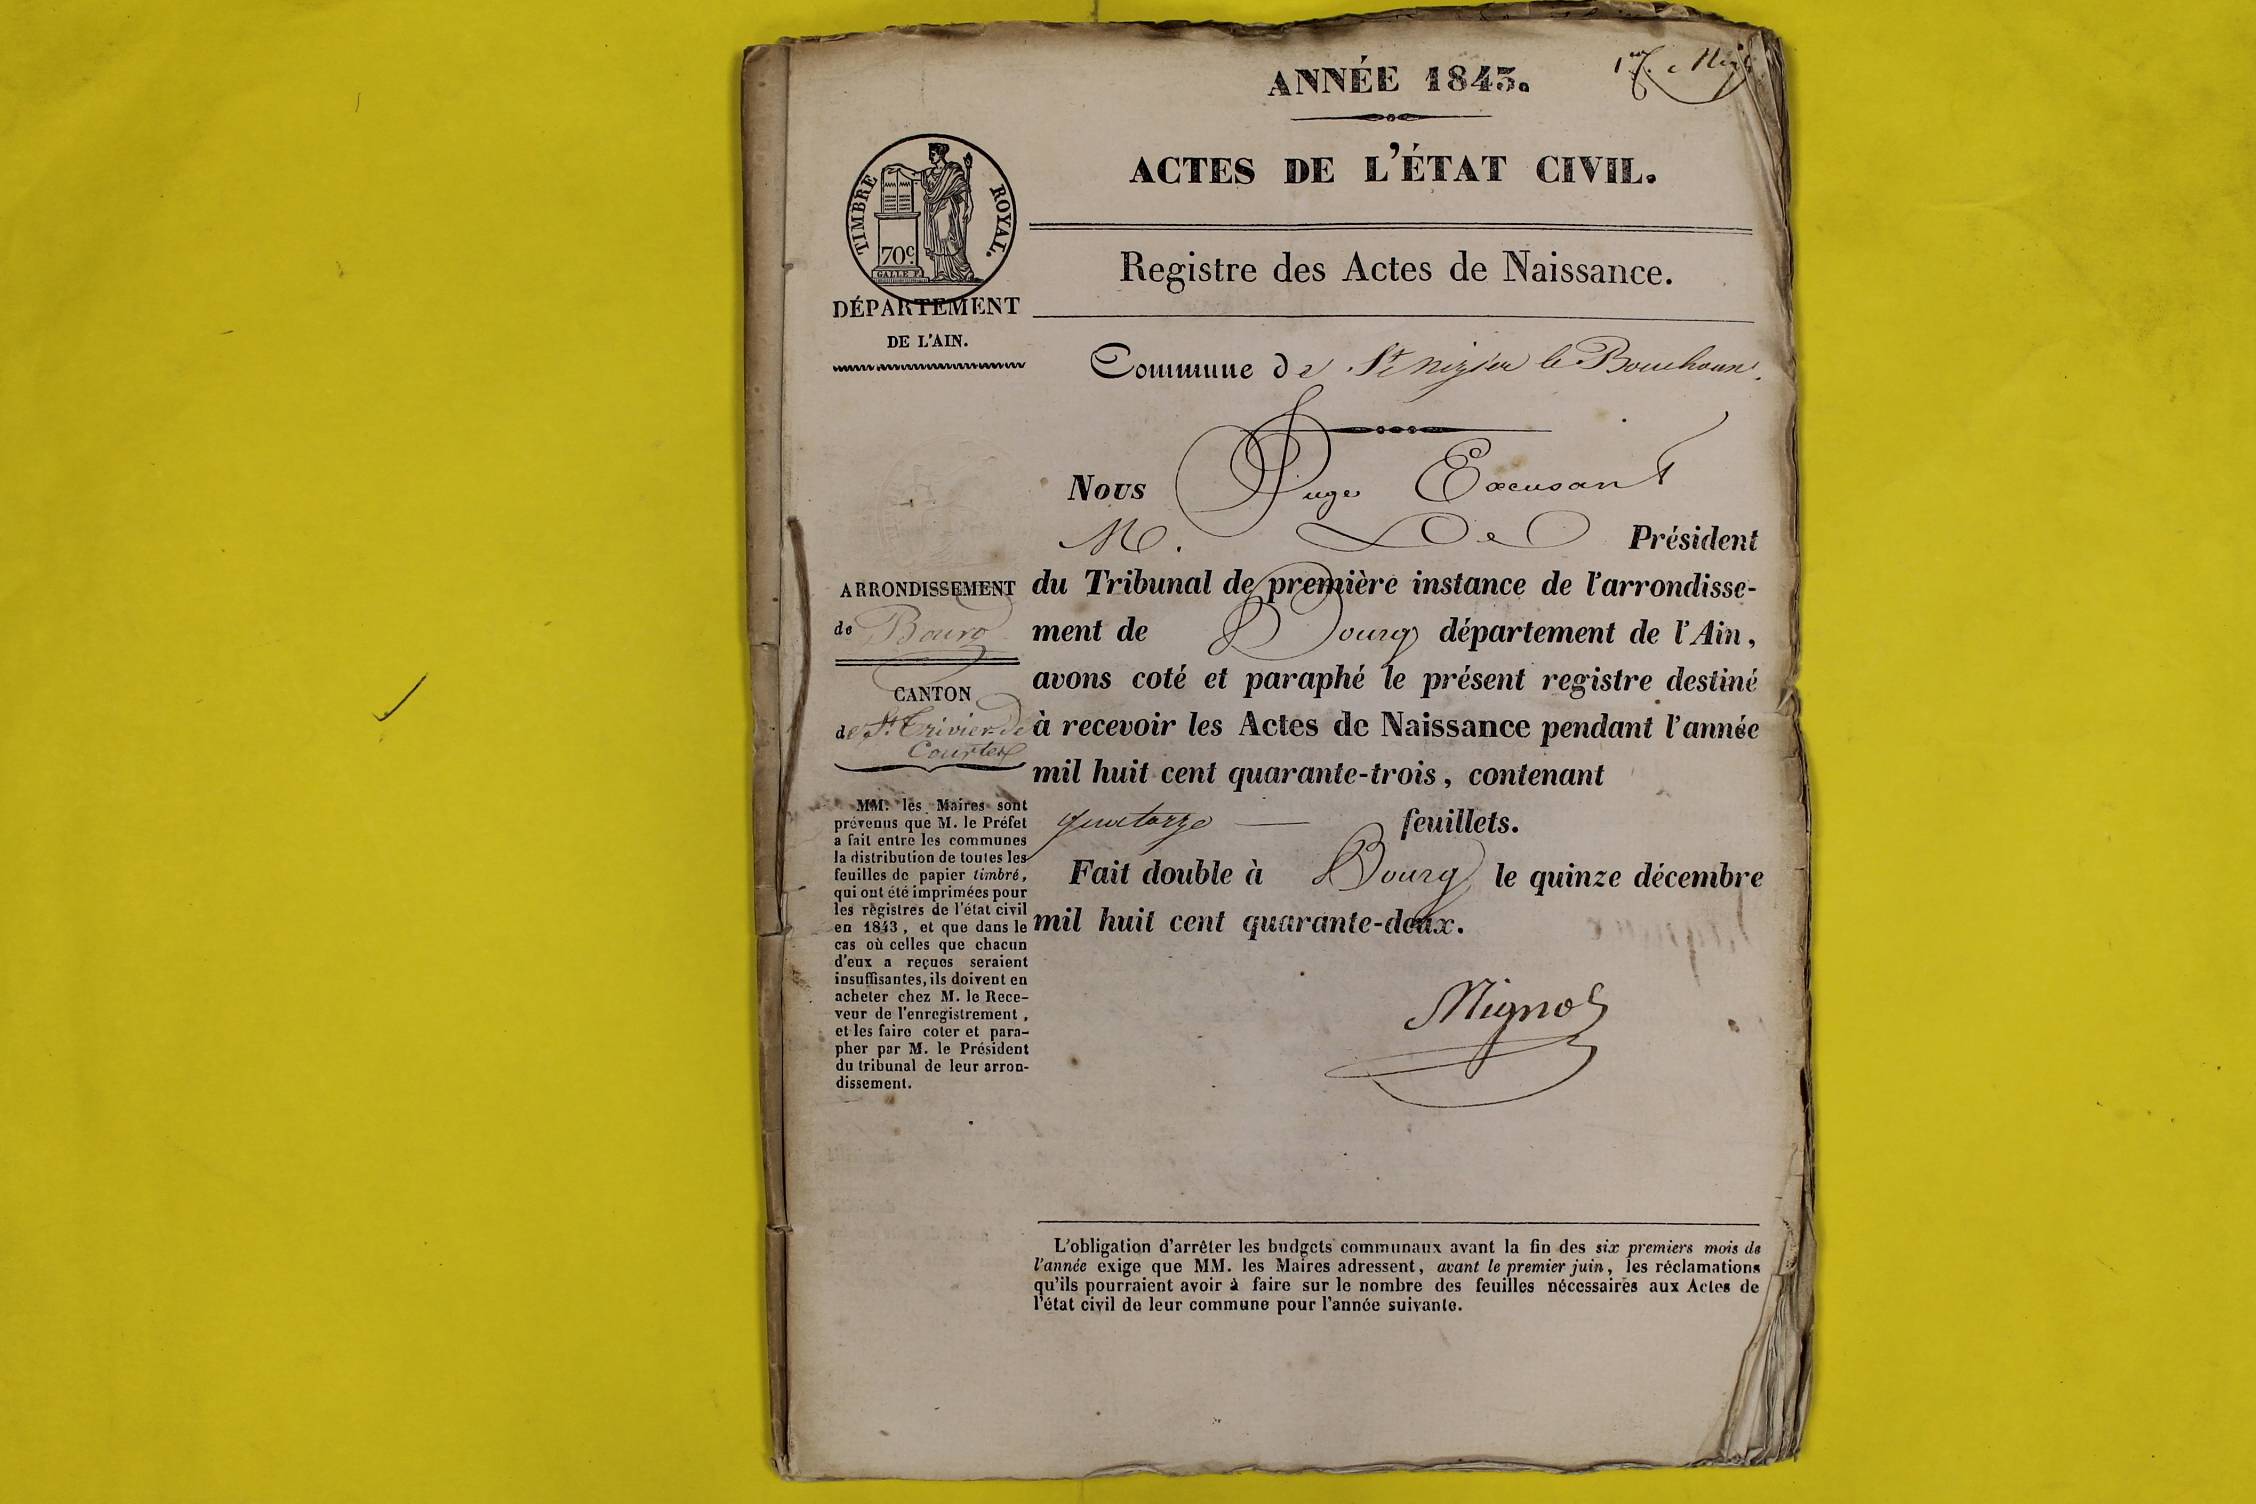 ANNÉE 1843.
1er
ACTES DE L'ÉTAT CIVIL.
TIMBRE ROYAL.
70c
GALLE F.
Registre des Actes de Naissance.
DÉPARTEMENT
DE L'AIN.
Commune de St nizier le Bouchoux.
Nous Juge Excusant
M. Le Président
ARRONDISSEMENT
de Bourg
du Tribunal de première instance de l'arrondisse-
ment de Bourg département de l'Ain,
avons coté et paraphé le présent registre destiné
à recevoir les Actes de Naissance pendant l'année
mil huit cent quarante-trois, contenant
quatorze feuillets.
Fait double à Bourg le quinze décembre
mil huit cent quarante-deux.
CANTON
de St. Trivier de
Courtes
MM. les Maires sont
prévenus que M. le Préfet
a fait entre les communes
la distribution de toutes les
feuilles de papier timbré,
qui ont été imprimées pour
les registres de l'état civil
en 1843, et que dans le
cas où celles que chacun
d'eux a reçues seraient
insuffisantes, ils doivent en
acheter chez M. le Rece-
veur de l'enregistrement,
et les faire coter et para-
pher par M. le Président
du tribunal de leur arron-
dissement.
L'obligation d'arrêter les budgets communaux avant la fin des six premiers mois de
l'année exige que MM. les Maires adressent, avant le premier juin, les réclamations
qu'ils pourraient avoir à faire sur le nombre des feuilles nécessaires aux Actes de
l'état civil de leur commune pour l'année suivante.